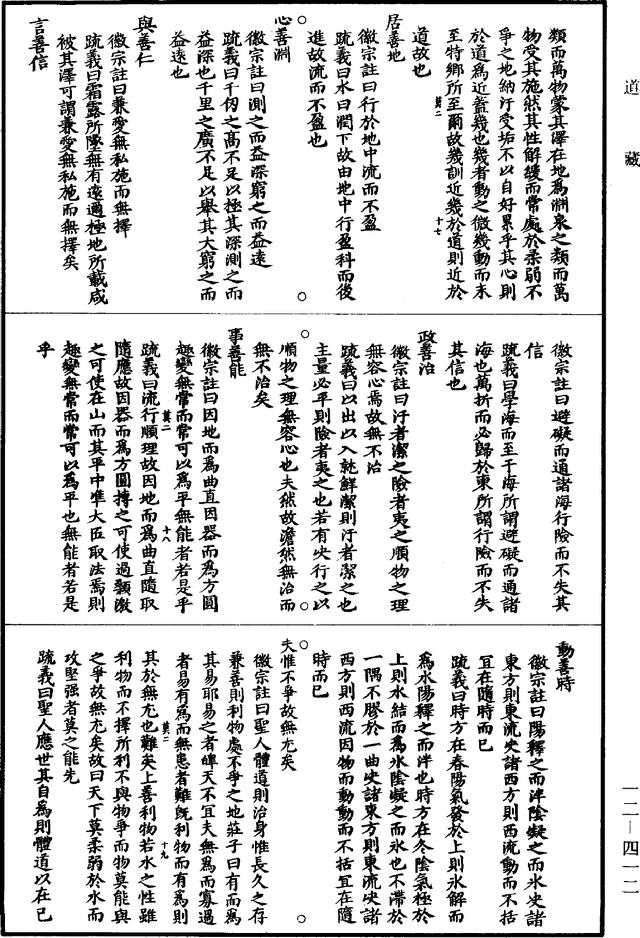 道藏
類而萬物蒙其澤在地爲淵泉之類而萬
物受其施然其性解緩而常處於柔弱不
爭之地納汙受垢不以自好累乎其心則
於道爲近蓋幾也幾者動之微幾動而未
至特鄉所至爾故幾訓近幾於道則近於
莫二 十七
道故也
居善地
徽宗註曰行於地中流而不盈
疏義曰水曰潤下故由地中行盈科而後
進故流而不盈也
心善淵
徽宗註曰測之而益深窮之而益遠
疏義曰千仞之高不足以極其深測之而
益深也千里之廣不足以舉其大窮之而
益遠也
與善仁
徽宗註曰兼愛無私施而無擇
疏義曰霜露所墜無有遠邇極地所載咸
被其澤可謂兼愛無私施而無擇矣
言善信
徽宗註曰避礙而通諸海行險而不失其
信
疏義曰學海而至于海所謂避礙而通諸
海也萬折而必歸於東所謂行險而不失
其信也
政善治
徽宗註曰汙者潔之險者夷之順物之理
無容心焉故無不治
疏義曰以出以入就鮮潔則汙者潔之也
主量必平則險者夷之也若有決行之以
順物之理無容心也夫然故澹然無治而
無不治矣
事善能
徽宗註曰因地而爲曲直因器而爲方圓
趣變無常而常可以爲平無能者若是乎
莫二 十八
疏義曰流行順理故因地而爲曲直隨取
隨應故因器而爲方圓搏之可使過顙激
之可使在山而其平中準大匠取法焉則
趣變無常而常可以爲平也無能者若是
乎
動善時
徽宗註曰陽釋之而泮陰凝之而冰決諸
東方則東流決諸西方則西流動而不括
宜在隨時而已
疏義曰時方在春陽氣發於上則氷解而
爲水陽釋之而泮也時方在冬陰氣極於
上則水結而爲氷陰凝之而氷也不滯於
一隅不膠於一曲決諸東方則東流決諸
西方則西流因物而動動而不括宜在隨
時而已
夫惟不爭故無尤矣
徽宗註曰聖人體道則治身惟長久之存
兼善則利物處不爭之地莊子曰有而爲
其易耶易之者皞天不宜夫無爲而寡過
者易有爲而無患者難既利物而有爲則
其於無尤也難矣上善利物若水之性雖
莫二 十九
利物而不擇所利不與物爭而物莫能與
之爭故無尤矣故曰天下莫柔弱於水而
攻堅强者莫之能先
疏義曰聖人應世其自爲則體道以在己
一一二—四一二